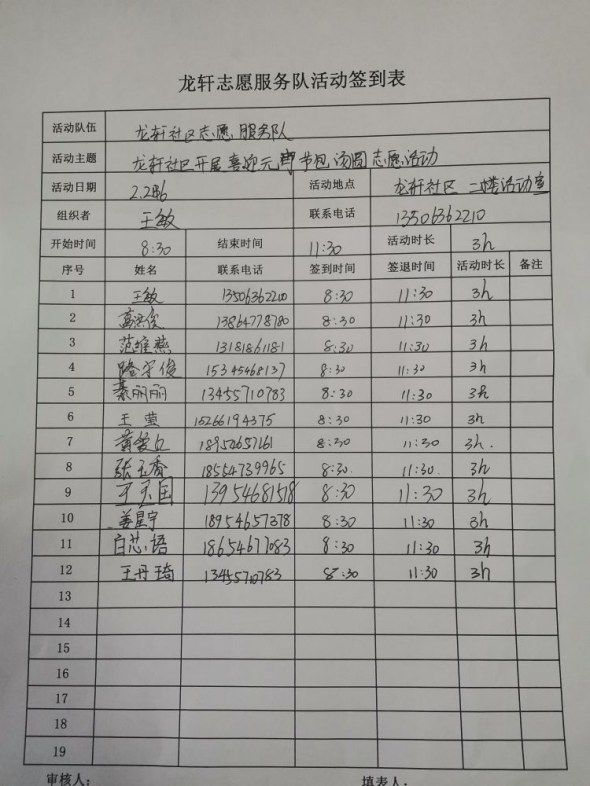 龙轩志愿服务队活动签到表
活动队伍 龙轩社区志愿服务队
活动主题 龙轩社区开展喜迎元宵节包汤圆志愿活动
活动日期 活动地点 龙轩社区 二楼活动室
组织者 王敏 联系电话 13506362210
开始时间 8:30 结束时间 11:30 活动时长 3h
序号 姓名 联系电话 签到时间 签退时间 活动时长 备注
1 王敏 8:30 11:30 3h
2 13864778780 8:30 11:30 3h
3 范维燕 13181861181 8:30 11:30 3h
4 隆守俊 15345468137 8:30 11:30 3h
5 綦丽丽 13455710783 8:30 11:30 3h
6 王萱 15266194375 8:30 11:30 3h
7 18954657161 8:30 11:30 3h.
8 张玉香 18554739965 8:30 11:30 3h
9 13954681518 8:30 11:30 3h
10 姜星宇 18954657378 8:30 11:30 3h
11 白芯语 18654677083 8:30 11:30 3h
12 王丹琦 1345570783 8:30 11:30 3h
13
14
15
16
17
18
19
审核人: 填表人: